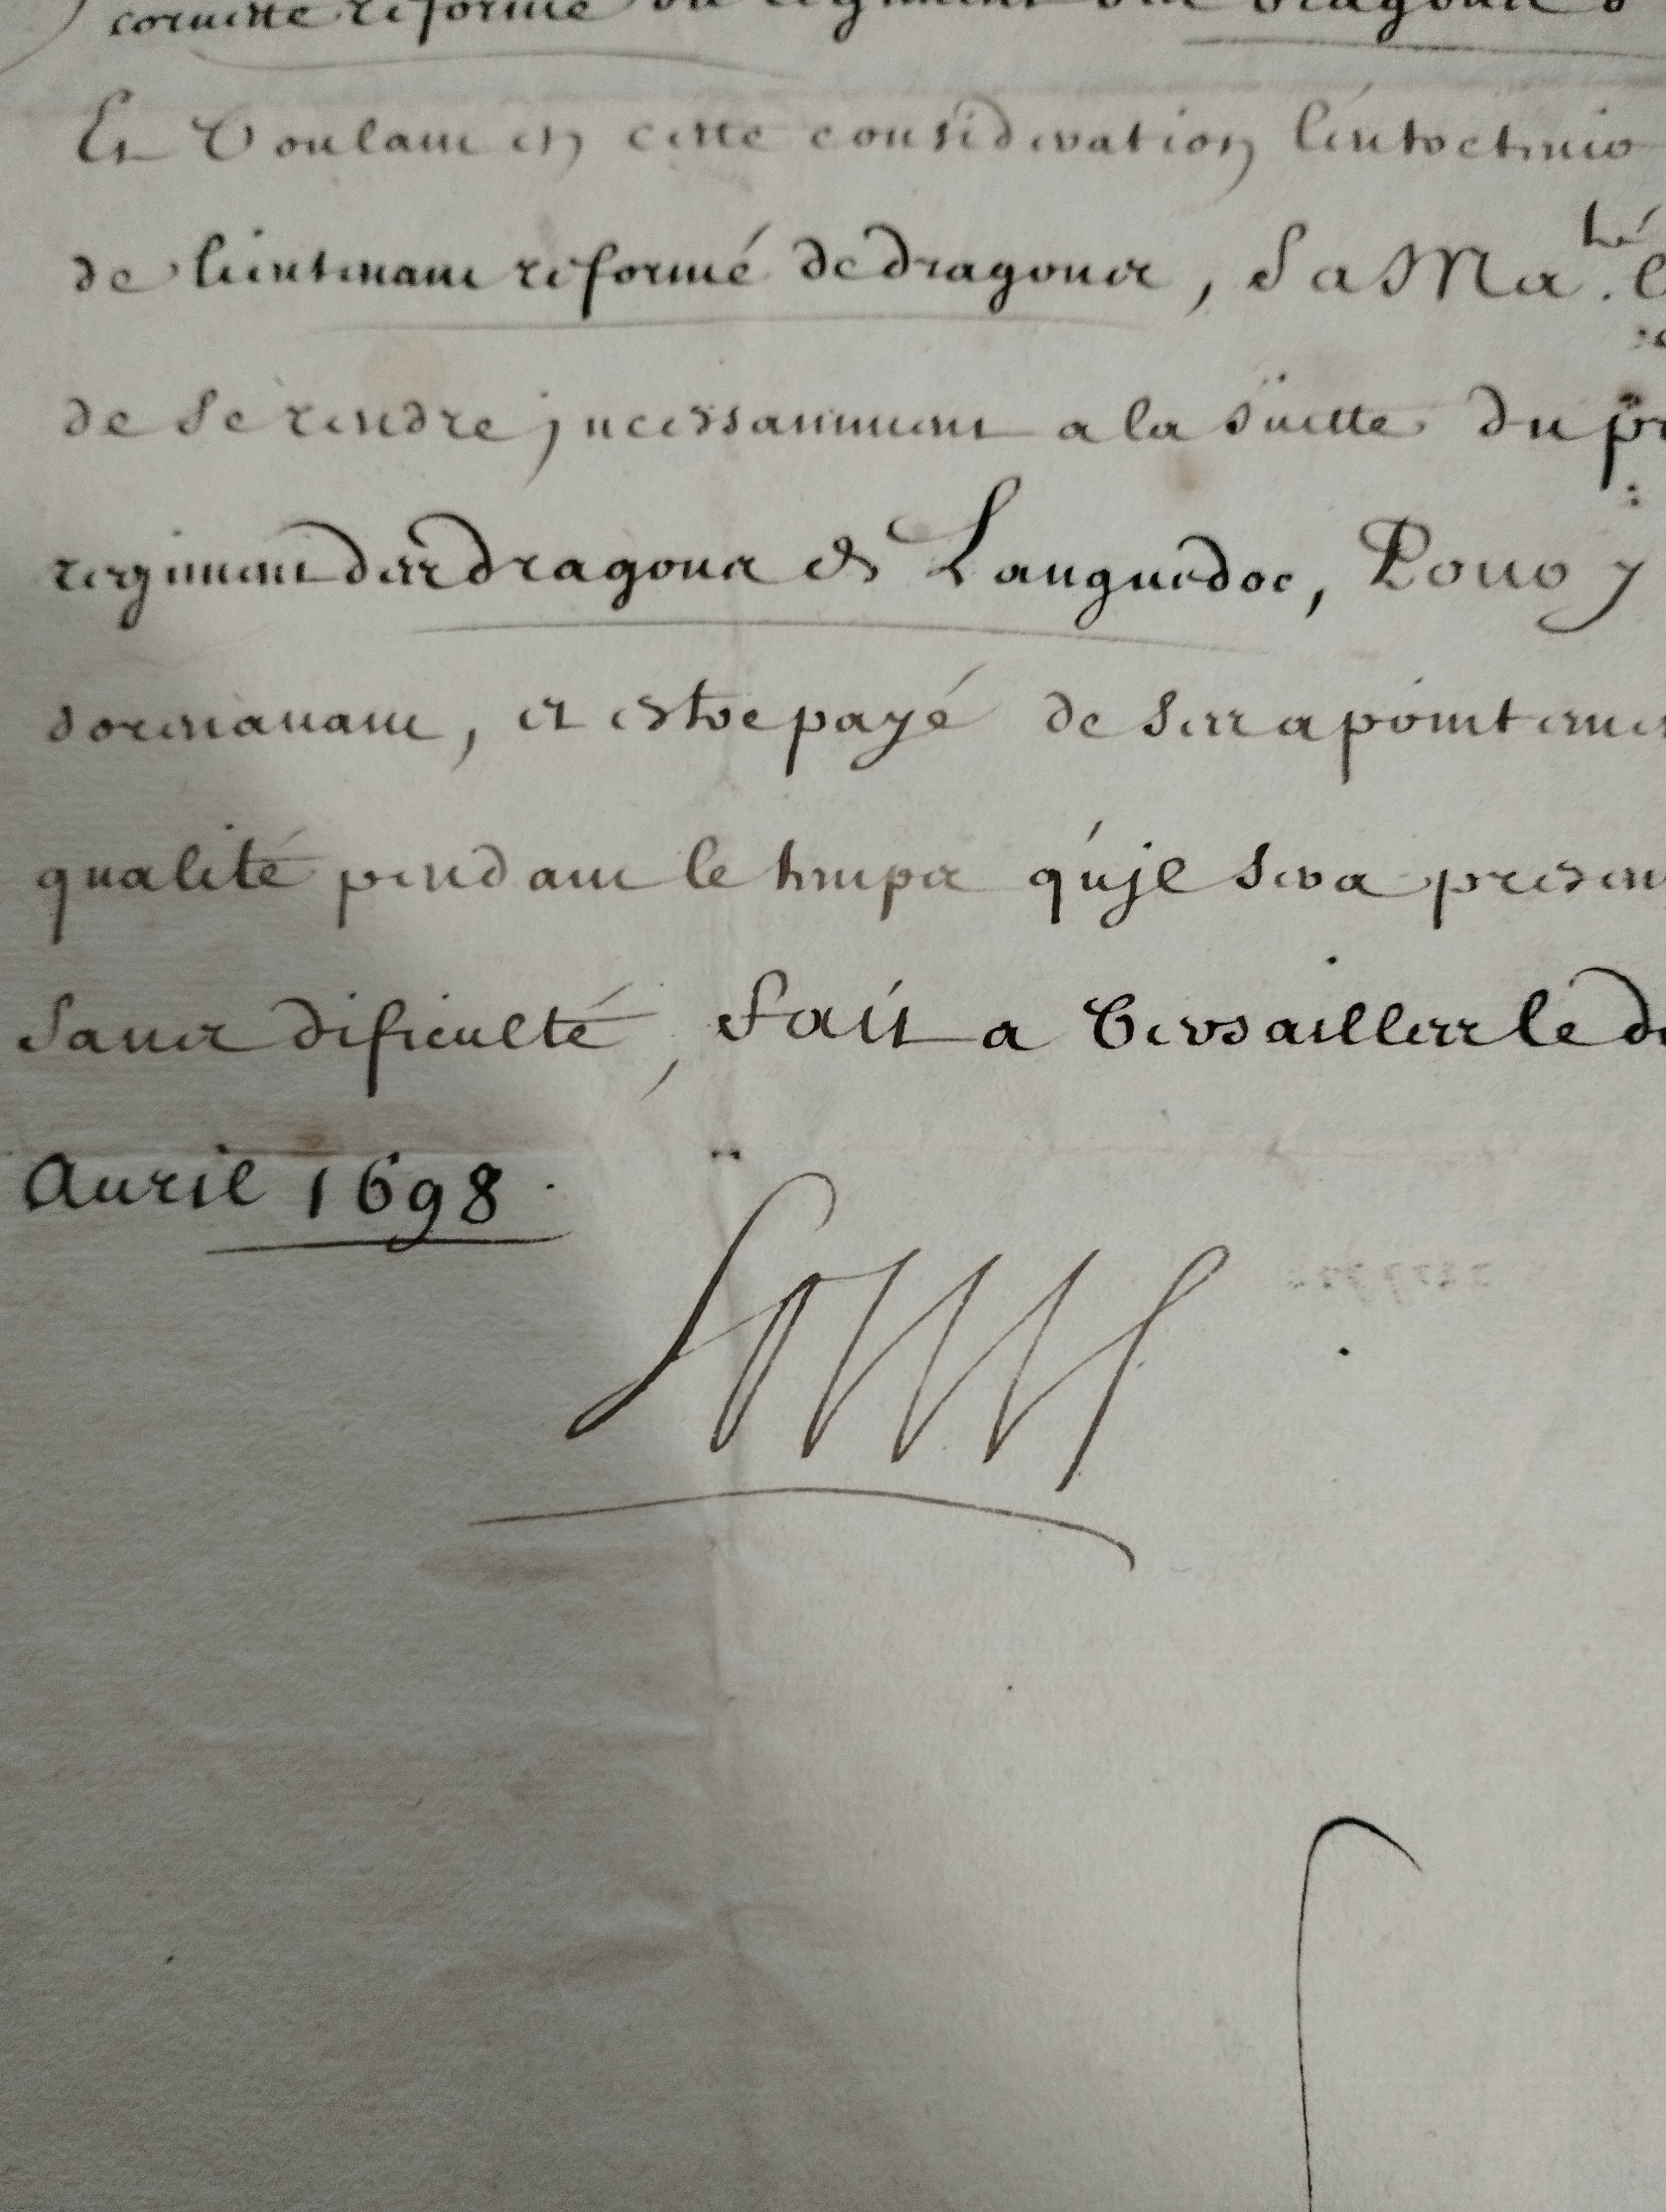 cornette reformé du regiment des dragons d
Et Voulant en cette consideration l'entretenir
de lieutenant reformé de dragons, Sa Ma.té
de se rendre jncessamment a la suitte du pr
regiment des dragons de Languedoc, Pour y
doresnauant, et estre payé de ses apointemen
qualité pendant le temps qu'jl sera presen
Sans dificulté, Fait a Versailles le d
Auril 1698.
Louis